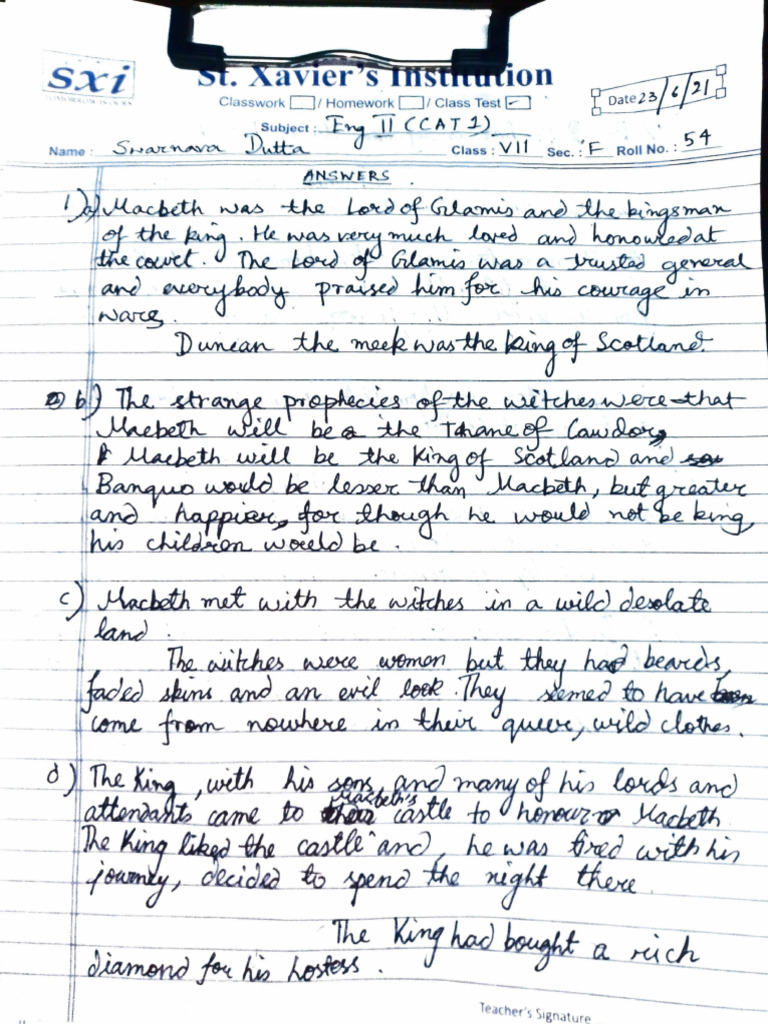 sxi
St. Xavier's Institution
Classwork / Homework / Class Test
Date 23/6/21
Subject : Eng II (CCAT 1)
Name : Swarnava Dutta Class : VII Sec. : F Roll No. : 54
ANSWERS
1) a) Macbeth was the Lord of Glamis and the kingsman
of the king. He was very much loved and honoured at
the court. The Lord of Glamis was a trusted general
and everybody praised him for his courage in
wars.
Duncan the meek was the king of Scotland.
b) The strange prophecies of the witches were that
Macbeth will be the Thane of Cawdor,
Macbeth will be the King of Scotland and
Banquo would be lesser than Macbeth, but greater
and happier, for though he would not be king,
his children would be.
c) Macbeth met with the witches in a wild desolate
land.
The witches were women but they had beards,
faded skins and an evil look. They semed to have
come from nowhere in their queer, wild clothes.
d) The King, with his sons, and many of his lords and
attendants came to Macbeth's castle to honour Macbeth.
The King liked the castle and, he was tired with his
journey, decided to spend the night there.
The King had bought a rich
diamond for his hostess.
Teacher's Signature